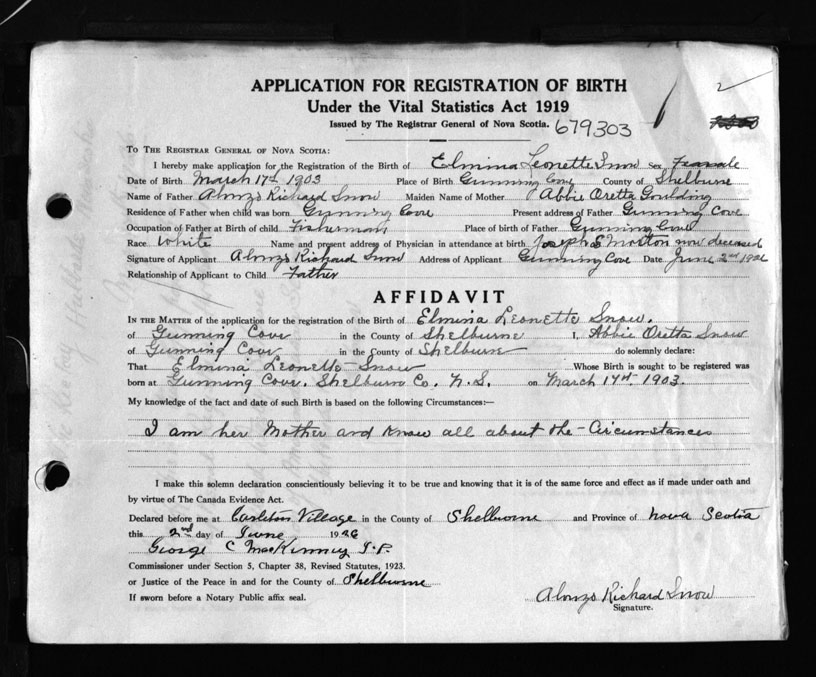 APPLICATION FOR REGISTRATION OF BIRTH
Under the Vital Statistics Act 1919
Issued by The Registrar General of Nova Scotia. 679303
To The Registrar General of Nova Scotia:
I hereby make application for the Registration of the Birth of Elmina Leonette Snow Sex Female
Date of Birth March 17th 1903 Place of Birth Gunning Cove County of Shelburne
Name of Father Alonzo Richard Snow Maiden Name of Mother Abbie Oretta Goulding
Residence of Father when child was born Gunning Cove Present address of Father Gunning Cove
Occupation of Father at Birth of child Fisherman Place of birth of Father Gunning Cove
Race White Name and present address of Physician in attendance at birth Joseph S Morton now deceased
Signature of Applicant Alonzo Richard Snow Address of Applicant Gunning Cove Date June 2nd 1926
Relationship of Applicant to Child Father
AFFIDAVIT
In the Matter of the application for the registration of the Birth of Elmina Leonette Snow.
of Gunning Cove in the County of Shelburne I, Abbie Oretta Snow
of Gunning Cove in the County of Shelburne do solemnly declare:
That Elmina Leonette Snow Whose Birth is sought to be registered was
born at Gunning Cove. Shelburn Co. N.S. on March 17th. 1903.
My knowledge of the fact and date of such Birth is based on the following Circumstances:—
I am her Mother and know all about the Circumstances
I make this solemn declaration conscientiously believing it to be true and knowing that it is of the same force and effect as if made under oath and
by virtue of The Canada Evidence Act.
Declared before me at Carleton Village in the County of Shelburne and Province of Nova Scotia
this 2nd day of June 1926
George C MacKinney J.P.
Commissioner under Section 5, Chapter 38, Revised Statutes, 1923.
or Justice of the Peace in and for the County of Shelburne
If sworn before a Notary Public affix seal.
Alonzo Richard Snow
Signature.